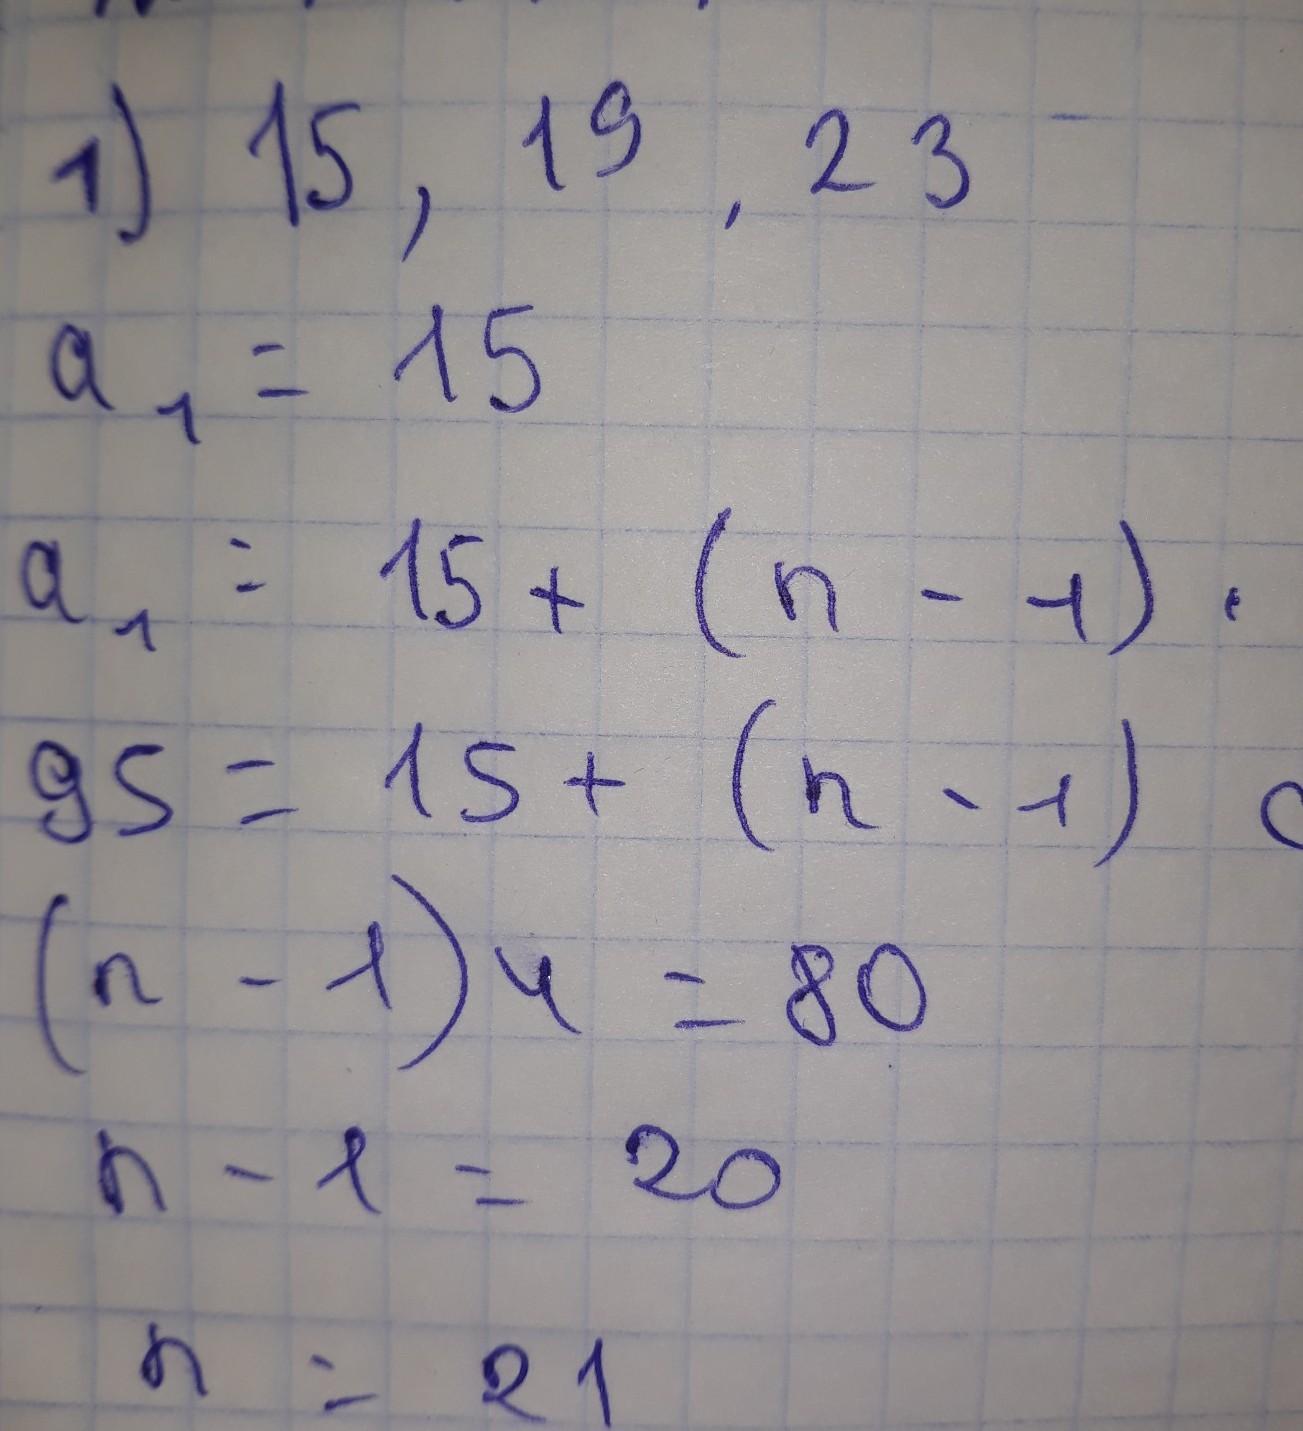 1) 15, 19, 23
a₁ = 15
a₁ = 15 + (n - 1) ·
95 = 15 + (n - 1)
(n - 1) 4 = 80
n - 1 = 20
n = 21